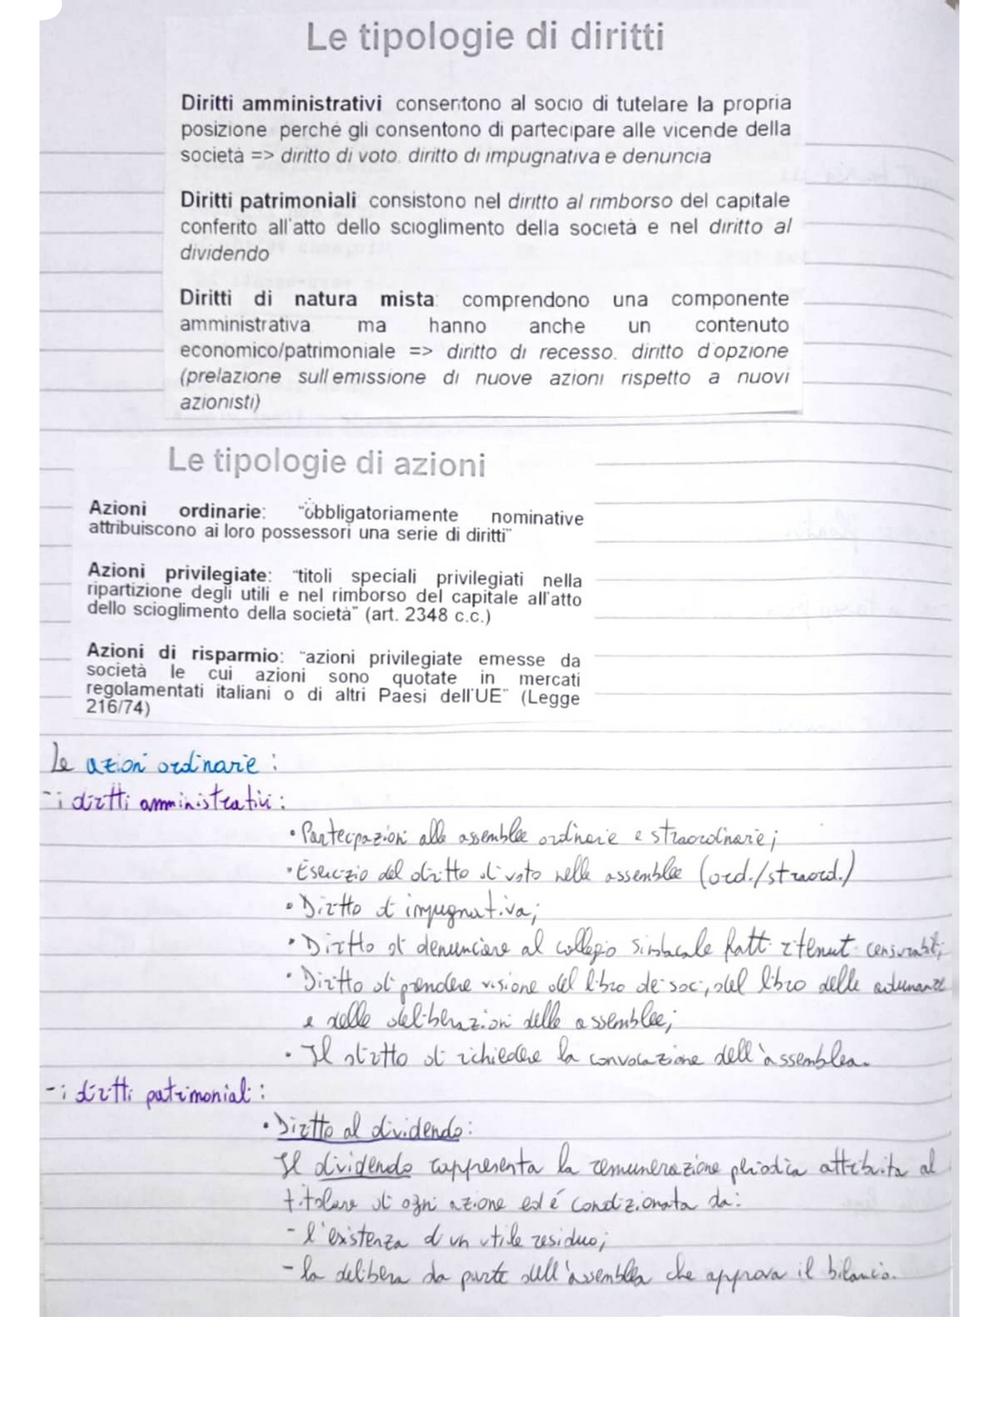 Le tipologie di diritti
Diritti amministrativi consentono al socio di tutelare la propria
posizione perché gli consentono di partecipare alle vicende della
società => diritto di voto, diritto di impugnativa e denuncia
Diritti patrimoniali consistono nel diritto al rimborso del capitale
conferito all'atto dello scioglimento della società e nel diritto al
dividendo
Diritti di natura mista: comprendono una componente
amministrativa ma hanno anche un contenuto
economico/patrimoniale => diritto di recesso, diritto d'opzione
(prelazione sull'emissione di nuove azioni rispetto a nuovi
azionisti)
Le tipologie di azioni
Azioni ordinarie: "obbligatoriamente nominative
attribuiscono ai loro possessori una serie di diritti"
Azioni privilegiate: "titoli speciali privilegiati nella
ripartizione degli utili e nel rimborso del capitale all'atto
dello scioglimento della società" (art. 2348 c.c.)
Azioni di risparmio: "azioni privilegiate emesse da
società le cui azioni sono quotate in mercati
regolamentati italiani o di altri Paesi dell'UE" (Legge
216/74)
Le azioni ordinarie:
- i diritti amministrativi:
• Partecipazioni alle assemblee ordinarie e straordinarie;
• Esercizio del diritto di voto nelle assemblee (ord./straord.)
• Diritto di impugnativa;
• Diritto di denunciare al collegio sindacale fatti ritenuti censurabili;
• Diritto di prendere visione del libro dei soci, del libro delle adunanze
e delle deliberazioni delle assemblee;
• Il diritto di richiedere la convocazione dell'assemblea.
- i diritti patrimoniali:
• Diritto al dividendo:
Il dividendo rappresenta la remunerazione periodica attribuita al
titolare di ogni azione ed é condizionata da:
- l'existenza d un utile residuo;
- la delibera da parte dell'assemblea che approva il bilancio.